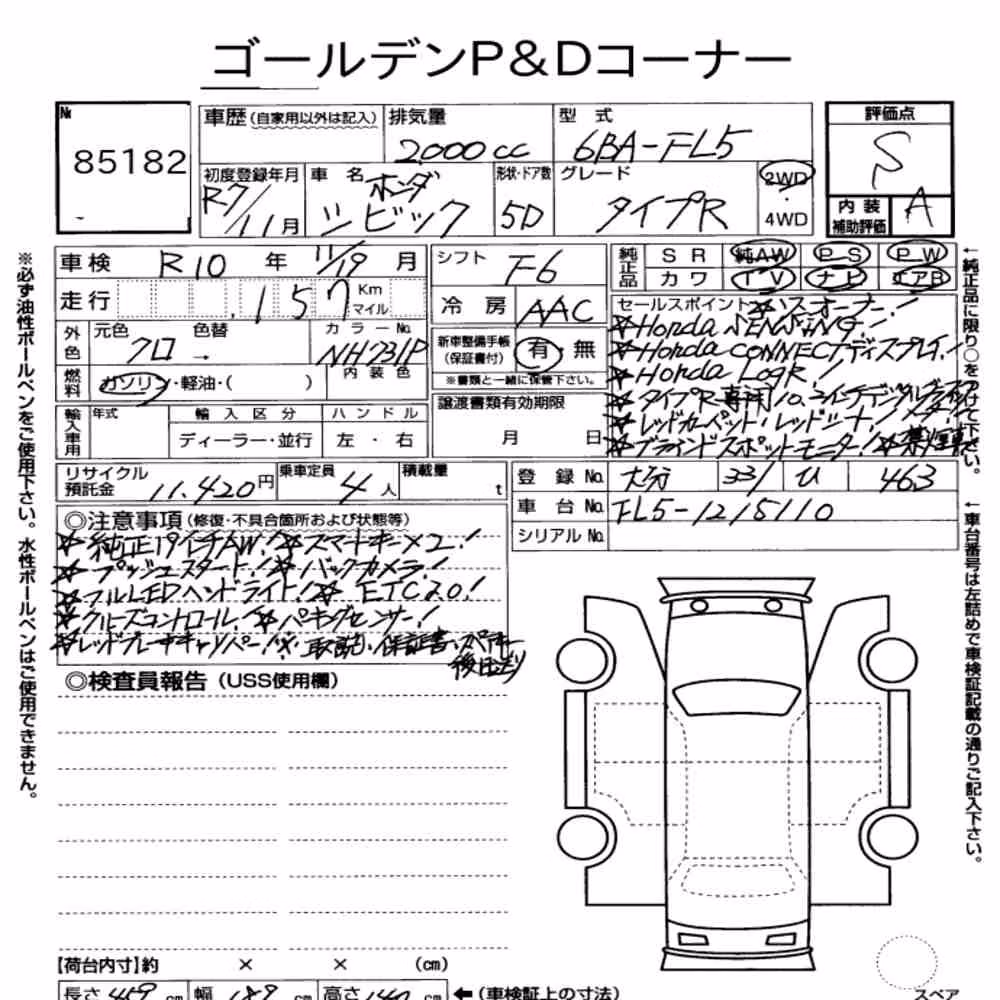 ゴールデンP&Dコーナー
№ 85182
車歴 (自家用以外は記入) 排気量 2000cc 型式 6BA-FL5
初度登録年月 R7/11月 車名 ホンダ シビック 形状・ドア数 5D グレード タイプR 2WD・4WD
評価点 S
内装補助評価 A
車検 R10年11/19月 シフト F6
走行 157 Km マイル 冷房 AAC
純正品 SR 純AW PS PW
カワ TV ナビ エアB
外色 元色 クロ 色替 → カラーNo. NH731P
新車整備手帳(保証書付) 有・無
※書類と一緒に保管下さい。
燃料 ガソリン・軽油・( ) 内装色
輸入車用 年式 輸入区分 ディーラー・並行 ハンドル 左・右
譲渡書類有効期限 月 日
セールスポイント ☆ワンオーナー!
☆Honda SENSING!
☆Honda CONNECTディスプレイ!
☆Honda LogR!
☆タイプR専用10.2インチデジタル
☆レッドカーペット・レッドシート!
☆ブラインドスポットモニター!☆禁煙車
リサイクル預託金 11,420円 乗車定員 4人 積載量 t
登録No. 大分 331 ひ 463
車台No. FL5-1215110
シリアルNo.
◎注意事項 (修復・不具合箇所および状態等)
☆純正19インチAW!☆スマートキー×2!
☆プッシュスタート!☆バックカメラ!
☆フルLEDヘッドライト!☆ETC2.0!
☆クルーズコントロール!☆パーキングセンサー!
☆レッドブレーキキャリパー!※取説、保証書、スペアキー
後日送り
◎検査員報告 (USS使用欄)
【荷台内寸】約 × × (cm)
長さ 459 cm 幅 189 cm 高さ 140 cm ←(車検証上の寸法)
スペア
※必ず油性ボールペンをご使用下さい。水性ボールペンはご使用できません。
←純正品に限り○をつけて下さい。
←車台番号は左詰めで車検証記載の通りご記入下さい。